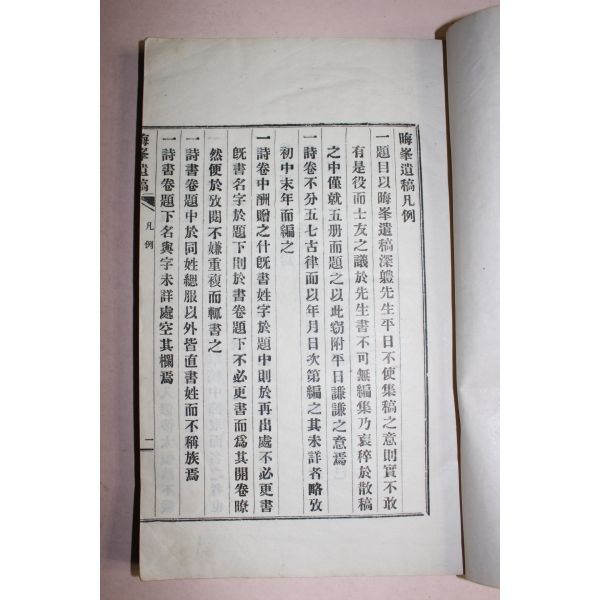 晦峯遺稿凡例
一題目以晦峯遺稿深軆先生平日不使集稿之意則實不敢
有是役而士友之議於先生書不可無編集乃裒稡於散稿
之中僅就五册而題之以此窃附平日謙謙之意焉
一詩卷不分五七古律而以年月日次第編之其未詳者略攷
初中末年而編之
一詩卷中酬贈之什旣書姓字於題中則於再出處不必更書
旣書名字於題下則於書卷題下不必更書而爲其開卷瞭
然便於攷閱不嫌重複而輒書之
一詩書卷題中於同姓緦服以外皆直書姓而不稱族焉
一詩書卷題下名與字未詳處空其欄焉
晦峯遺稿
凡例
二